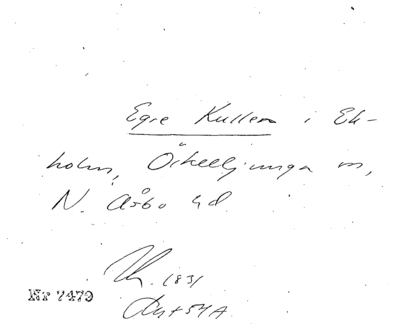 Egre Kullen i Ek-
holm, Örkelljunga sn,
N. Åsbo hd
1831
Nr 7479